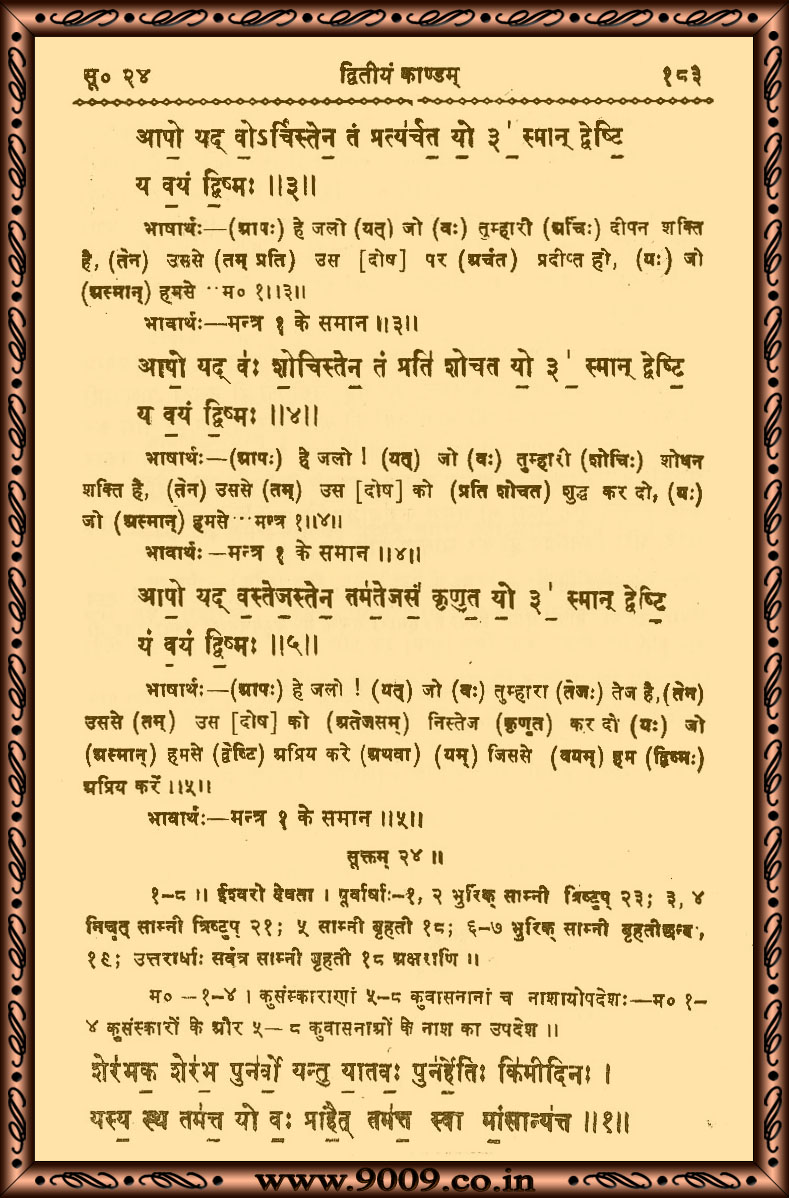 सू० २४ द्वितीयं काण्डम् १८३
आपो॒ यद् वो॒ऽर्चिस्तेन॒ तं प्रत्य॑र्चत॒ यो॒ ३॒॑ स्मान् द्वेष्टि॒
य व॒यं द्वि॒ष्मः ॥३॥
भाषार्थः—(आपः) हे जलो (यत्) जो (वः) तुम्हारी (अर्चिः) दीपन शक्ति
है, (तेन) उससे (तम् प्रति) उस [दोष] पर (अर्चत) प्रदीप्त हो, (यः) जो
(अस्मान्) हमसे ··म० १॥३॥
भावार्थः—मन्त्र १ के समान ॥३॥
आपो॒ यद् व॑ः शो॒चिस्तेन॒ तं प्रति॑ शोचत यो॒ ३॒॑ स्मान् द्वेष्टि॒
य व॒यं द्वि॒ष्मः ॥४॥
भाषार्थः—(आपः) हे जलो ! (यत्) जो (वः) तुम्हारी (शोचिः) शोधन
शक्ति है, (तेन) उससे (तम्) उस [दोष] को (प्रति शोचत) शुद्ध कर दो, (यः)
जो (अस्मान्) हमसे···मन्त्र १॥४॥
भावार्थः—मन्त्र १ के समान ॥४॥
आपो॒ यद् व॒स्तेज॒स्तेन॒ तम॑ते॒जसं॑ कृणु॒त॒ यो॒ ३॒॑ स्मान् द्वेष्टि॒
यं व॒यं द्वि॒ष्मः ॥५॥
भाषार्थः—(आपः) हे जलो ! (यत्) जो (वः) तुम्हारा (तेजः) तेज है,(तेन)
उससे (तम्) उस [दोष] को (अतेजसम्) निस्तेज (कृणुत) कर दो (यः) जो
(अस्मान्) हमसे (द्वेष्टि) अप्रिय करे (अथवा) (यम्) जिससे (वयम्) हम (द्विष्मः)
अप्रिय करें ॥५॥
भावार्थः—मन्त्र १ के समान ॥५॥
सूक्तम् २४ ॥
१-८ ॥ ईश्वरो देवता । पूर्वार्धाः-१, २ भुरिक् साम्नी त्रिष्टुप् २३; ३, ४
निचृत् साम्नी त्रिष्टुप् २१; ५ साम्नी बृहती १८; ६-७ भुरिक् साम्नी बृहतीछन्दः,
१९; उत्तरार्धाः सर्वत्र साम्नी बृहती १८ अक्षराणि ॥
म० —१-४ । कुसंस्काराणां ५-८ कुवासनानां च नाशायोपदेशः—म० १-
४ कुसंस्कारों के और ५—८ कुवासनाओं के नाश का उपदेश ॥
शेर॑भक॒ शेर॑भ॒ पुन॑र्वो यन्तु॒ या॒तवः॒ पुन॑र्हे॒तिः कि॑मीदिनः ।
यस्य॒ स्थ तम॑त्त॒ यो व॒ः प्राहै॒त् तम॑त्त॒ स्वा मां॒सान्य॑त्त ॥१॥
www.9009.co.in